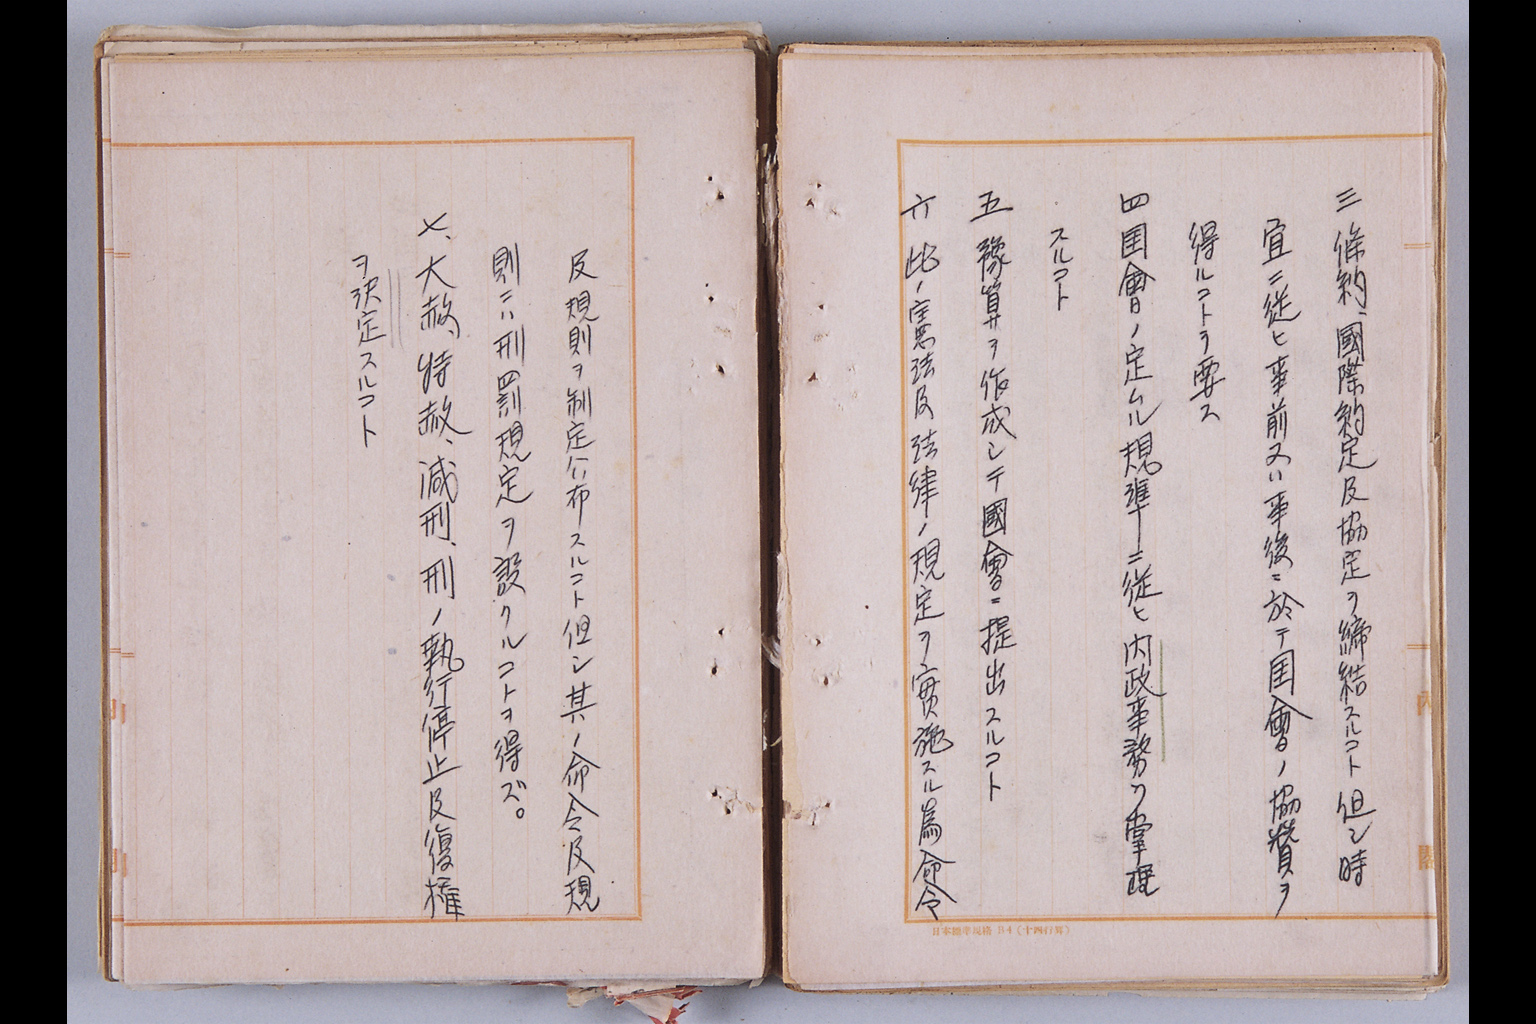 三 條約、國際約定及協定ヲ締結スルコト但シ時
宜ニ従ヒ事前又ハ事後ニ於テ国會ノ協賛ヲ
得ルコトヲ要ス
四 国會ノ定ムル規準ニ従ヒ内政事務ヲ掌理
スルコト
五 豫算ヲ作成シテ國會ニ提出スルコト
六 此ノ憲法及法律ノ規定ヲ實施スル為命令
日本標準規格 B4(十四行罫)
及規則ヲ制定公布スルコト但シ其ノ命令及規
則ニハ刑罰規定ヲ設クルコトヲ得ズ。
七、大赦、特赦、減刑、刑ノ執行停止及復権
ヲ決定スルコト